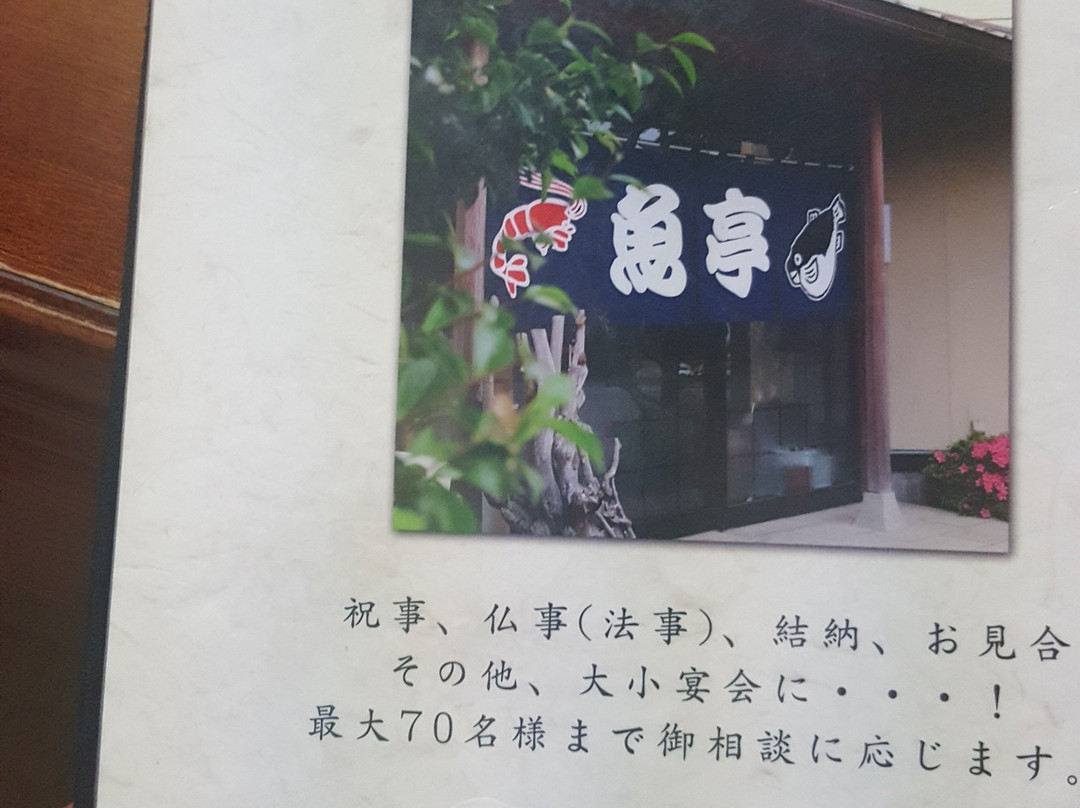 魚亭
祝事、仏事(法事)、結納、お見合
その他、大小宴会に・・・!
最大70名様まで御相談に応じます。